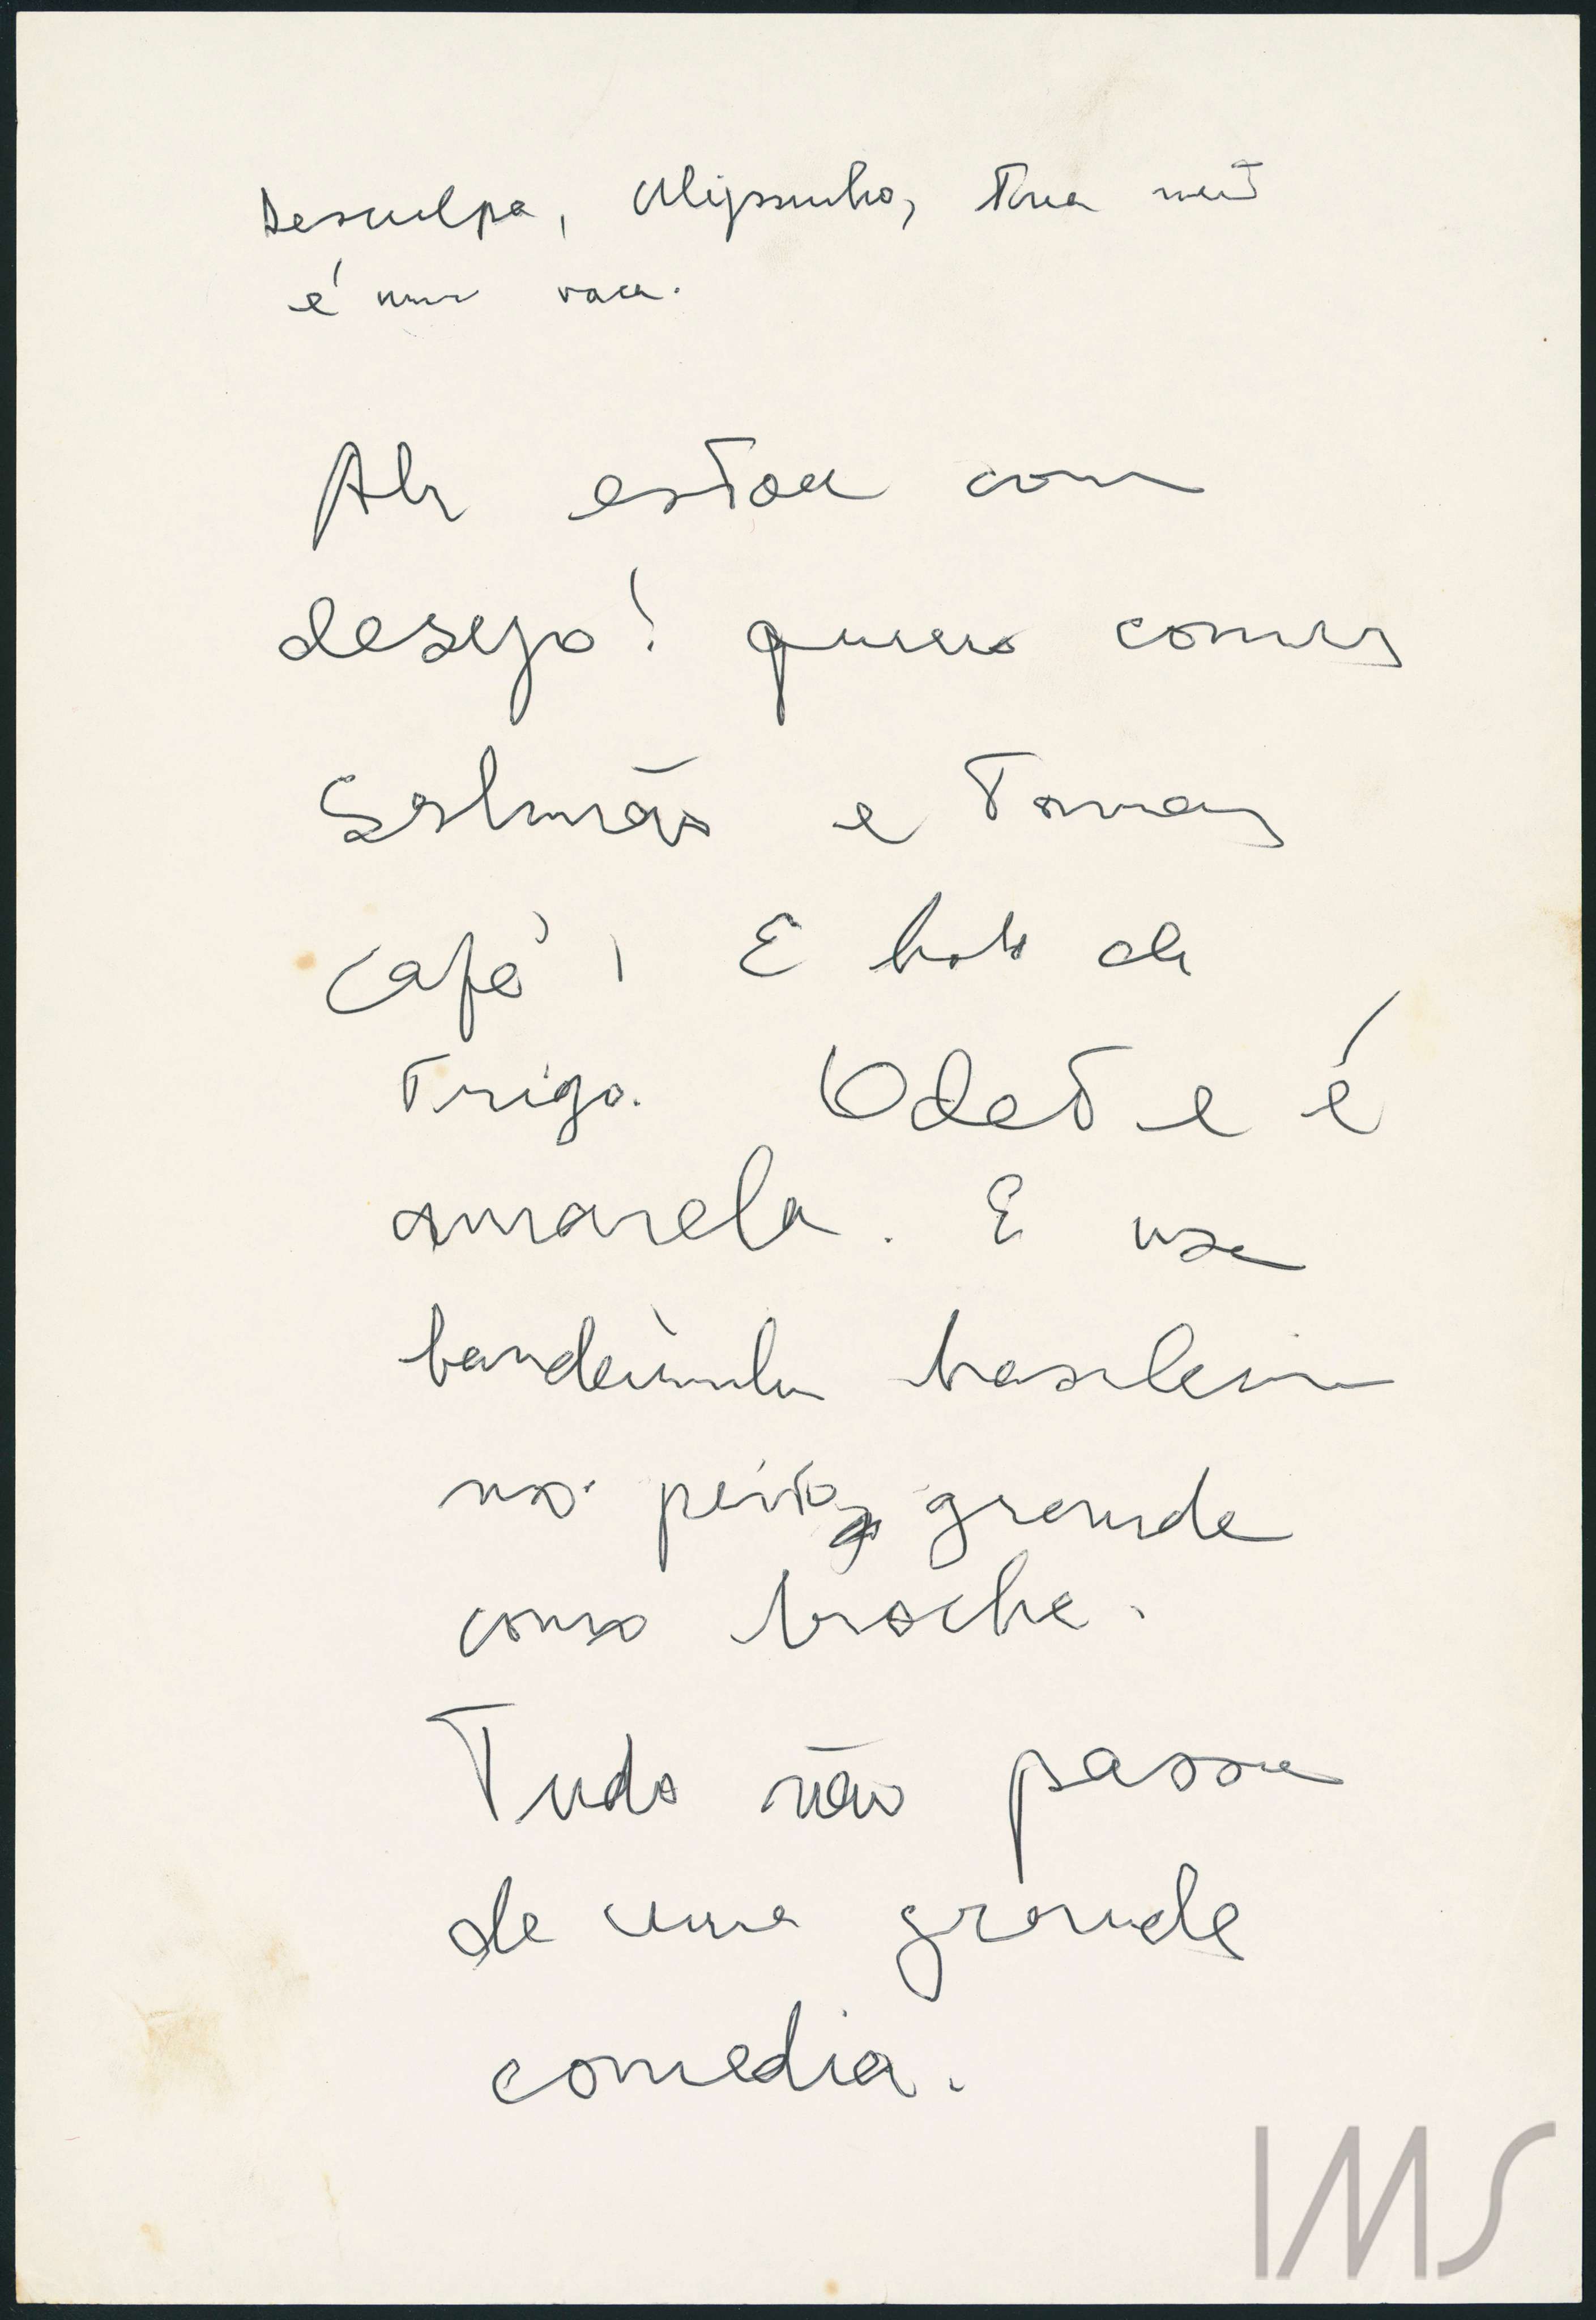 Desculpa, Ulissinho, tua mãe
é uma vaca.
Ah estou com
desejo! quero comer
salmão e tomar
café! E bolo de
trigo. Odete é
amarela. E usa
bandeirinha brasileira
no peito, grande
como broche.
Tudo não passa
de uma grande
comedia.
IMS